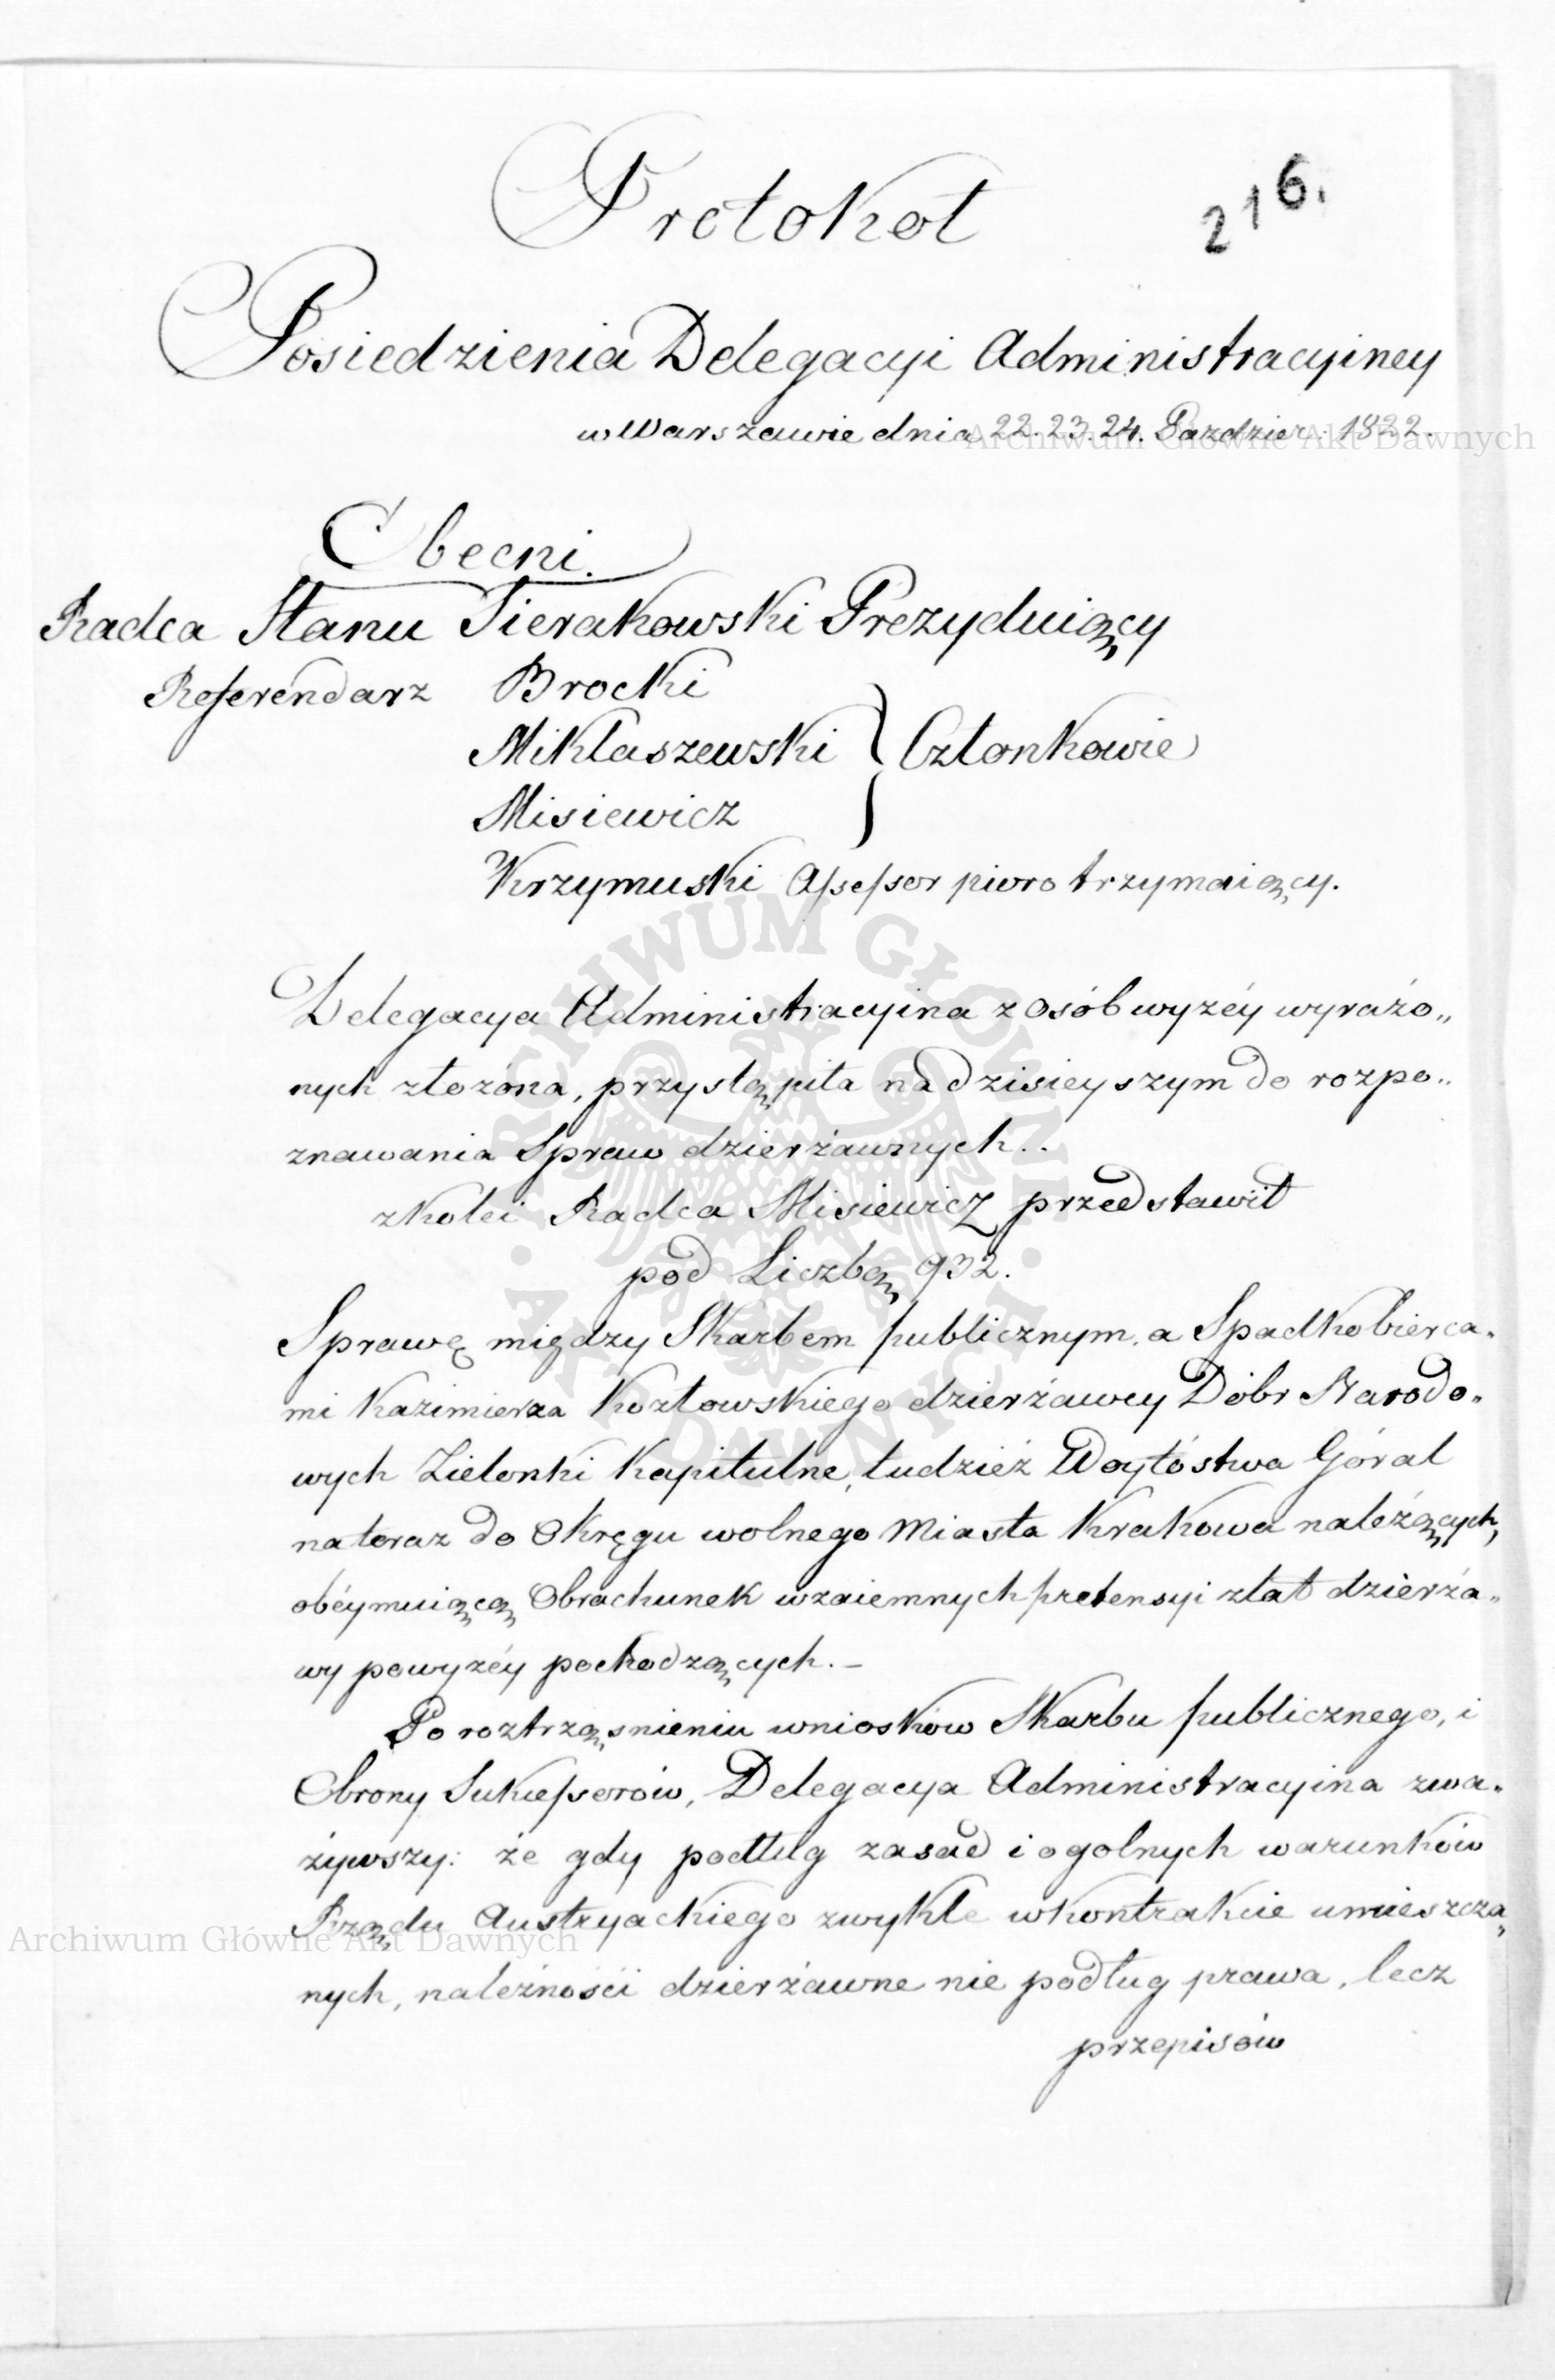 Protokoł
216.
Posiedzienia Delegacyi Administracyiney
w Warszawie dnia 22. 23. 24. Pazdzier. 1822.
Archiwum Główne Akt Dawnych
Obecni.
Radca Stanu Sierakowski Prezyduiący
Referendarz Brocki
Mikłaszewski } Członkowie
Misiewicz
Krzymuski Assessor pioro trzymaiący.
ARCHIWUM GŁÓWNE AKT DAWNYCH
Delegacya Administracyina z osób wyżéy wyrażo„
nych złożóna, przystąpiła na dzisieyszym do rozpo„
znawania Spraw dzierżawnych..
z kolei Radca Misiewicz przedstawił
pod Liczbą 932.
Sprawę między Skarbem publicznym, a Spadkobierca„
mi Kazimierza Kozłowskiego dzierżawcy Dóbr Narodo„
wych Zielonki Kapitulne, tudzież Woytóstwa Góral
na teraz do Okręgu wolnego Miasta Krakowa należących,
obéymuiącą Obrachunek wzaiemnych pretensyi z lat dzierża„
wy powyżéy pochodzących.—
Po roztrząśnieniu wniosków Skarbu publicznego, i
Obrony Sukcessorów, Delegacya Administracyina zwa„
żywszy: że gdy podług zasad i ogolnych warunków
Rządu Austryackiego zwykle w kontrakcie umieszcza„
Archiwum Główne Akt Dawnych
nych, należności dzierżawne nie podług prawa, lecz
przepisów